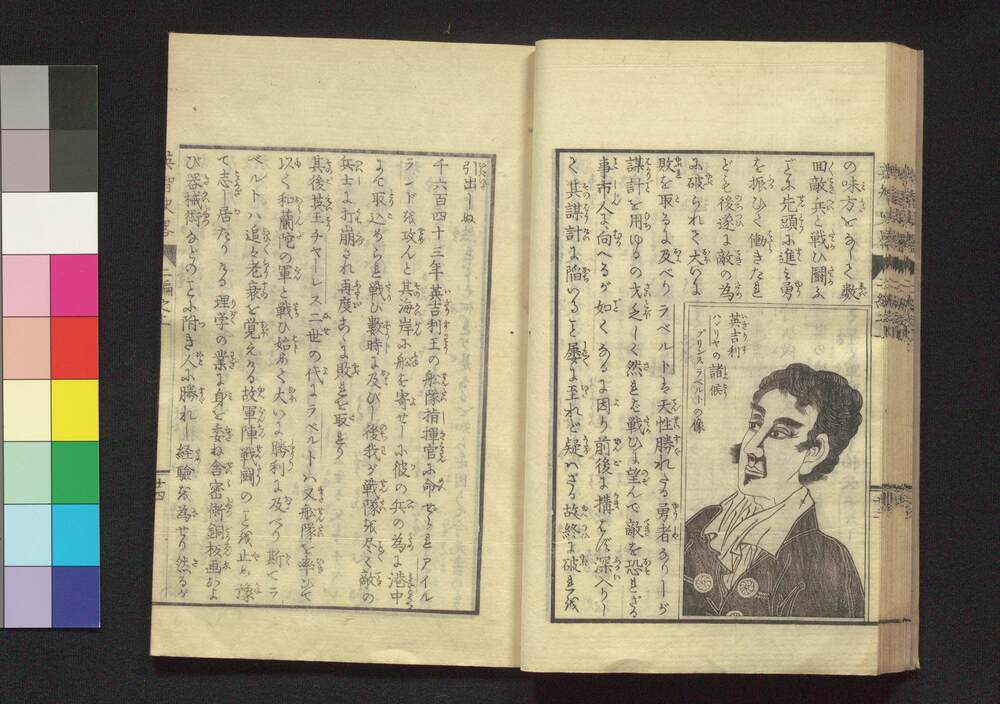 の味方をなして数
回敵兵と戦ひ闘ふ
を振ひて働きたれ
ども後遂に敵の為
に破られて大に
敗を取るに及べりラベルトは天性勝れたる勇者なりしが
謀計を用ゆるの才乏しく然れども戦ひに望んで敵を恐れざる
事市人に向へるが如くなるに因り前後に構はず深入りし
て其謀計に陥いること屡に至れど疑はざる故終に破れを
英吉利
ハノリヤの諸候
プリンスラベルトの像
引出しぬ
千六百四十三年英吉利王の舩隊指揮官に命ぜられアイル
ランドを攻んと其海岸に舩を寄せしに彼の兵の為に港中
まで取込められ戦ひ數時に及びし後我が戦隊を尽く敵の
兵士に打崩され再度おゝに敗れを取り
其後英王チャーレス二世の代にラベルトハ又舩隊を率ひて
以て和蘭陀の軍と戦ひ始めて大いに勝利に及べり斯てラ
ベルトハ追々老衰を覚えける故軍陣戦闘のことを止め豫
て志し居たりける理学の業に身を委ね舎密術銅板画およ
び器械術などのことに附き人に勝れし經驗を為せり然るが
二編之上
廿四